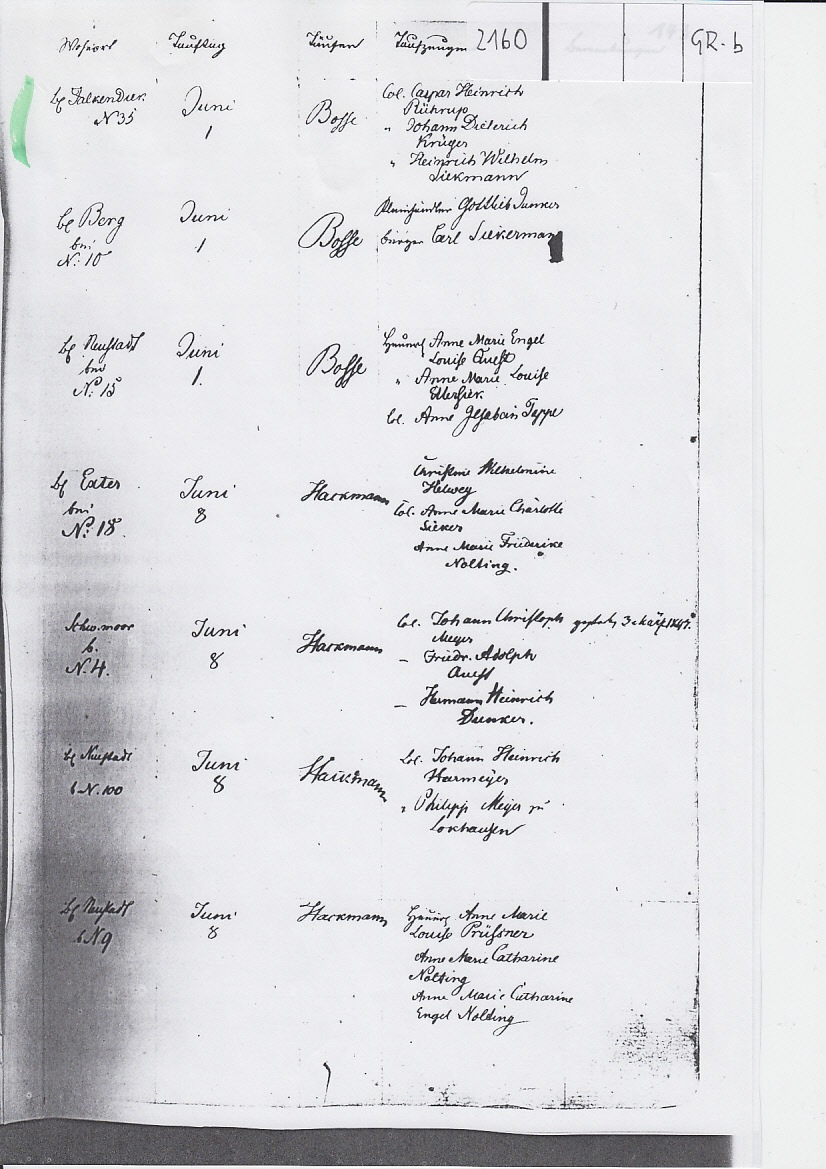 Wohnort Tauftag Täufer Taufzeugen 2160 GR-b
Bf Falkendiek Juni Bosse Col. Caspar Heinrich
N 35 1 Rührup
" Johann Dieterich
Krüger
" Heinrich Wilhelm
Siekmann
Bf Berg Juni Bosse Gottlieb Dunker
bei 1 bürger Carl Siekermann
N: 10
Bf Neustadt Juni Bosse Anne Marie Engel
bei 1. Louise Quest
N: 15 " Anne Marie Louise
Col. Anne Ilsabein Teppe
Bf Exter Juni Hackmann Christine Wilhelmine
bei 8 Helweg
N: 18. Col. Anne Marie Charlotte
Sieker
Anne Marie Friederike
Nolting.
Schw.moor Juni Hackmann Col. Johann Christoph
b. 8 Meyer
N. 4. – Friedr. Adolph
Quest
– Hermann Heinrich
Dunker.
Bf Neustadt Juni Hackmann Col. Johann Heinrich
b N. 100 8 Harmeyer
" Philipp Meyer zu
Loxhausen
Bf Neustadt Juni Hackmann Anne Marie
b N 9 8 Louise Prüssner
Anne Marie Catharine
Nolting
Anne Marie Catharine
Engel Nolting